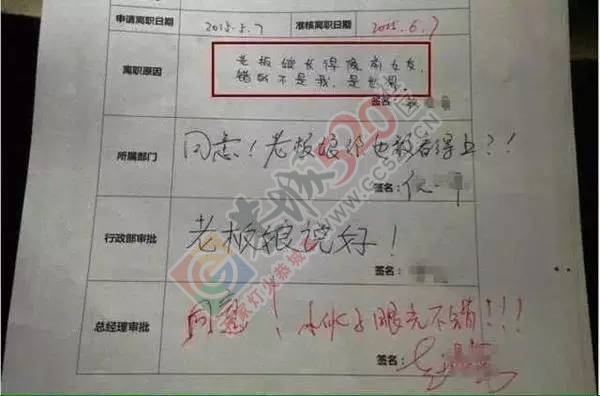 申请离职日期 2015.5.7 准核离职日期 2015.6.7
离职原因
老板娘长得像前女友,
错的不是我,是世界。
签名:
所属部门
同意!老板娘你也敢看得上?!
签名:
行政部审批
老板娘说好!
签名:
总经理审批
同意!小伙子眼光不错!!!
签名:
恭城520
www.gcs
灯火恭城